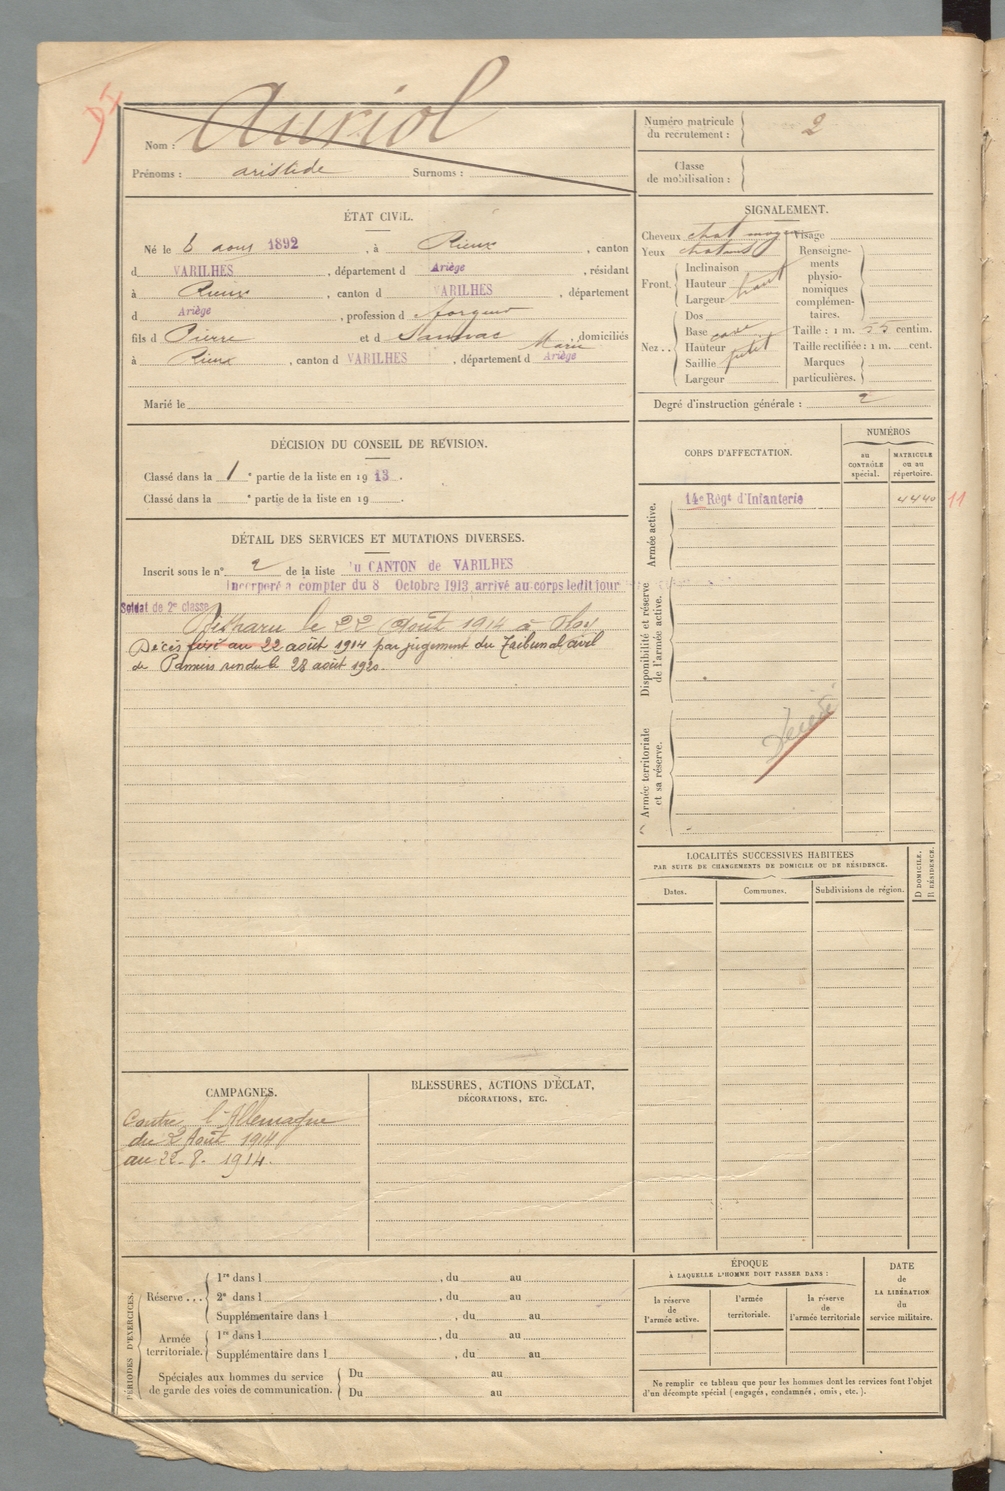 Auriol
Nom :
Prénoms : aristide Surnoms :
Numéro matricule
du recrutement : 2
Classe
de mobilisation :
ÉTAT CIVIL.
Né le 8 aout 1892, à Rieux, canton
d VARILHES, département d Ariège, résidant
à Rieux, canton d VARILHES, département
d Ariège, profession d forgeur
fils d Pierre et d Marie domiciliés
à Rieux, canton d VARILHES, département d Ariège
Marié le
SIGNALEMENT.
Cheveux chat moyen Visage
Yeux
Front. Inclinaison
Hauteur haut
Largeur
Nez .. Dos
Base cave
Hauteur petit
Saillie
Largeur
Renseigne-
ments
physio-
nomiques
complémen-
taires.
Taille : 1 m. 55 centim.
Taille rectifiée : 1 m. cent.
Marques
particulières.
Degré d'instruction générale : 2
DÉCISION DU CONSEIL DE RÉVISION.
Classé dans la 1e partie de la liste en 1913.
Classé dans la e partie de la liste en 19 .
DÉTAIL DES SERVICES ET MUTATIONS DIVERSES.
Inscrit sous le n° 2 de la liste du CANTON de VARILHES
Incorporé à compter du 8 Octobre 1913 arrivé au corps ledit jour
Soldat de 2e classe
le 22 Août 1914 à
Décès fixé au 22 août 1914 par jugement du Tribunal civil
de Pamiers rendu le 28 août 1920.
CORPS D'AFFECTATION.
NUMÉROS
au
CONTRÔLE
spécial.
MATRICULE
ou au
répertoire.
Armée active.
14e Regt d'Infanterie 4440 11
Disponibilité et réserve
de l'armée active.
Armée territoriale
et sa réserve.
Décédé
LOCALITÉS SUCCESSIVES HABITÉES
PAR SUITE DE CHANGEMENTS DE DOMICILE OU DE RÉSIDENCE.
Dates. Communes. Subdivisions de région.
D DOMICILE.
R RÉSIDENCE.
CAMPAGNES.
Contre l'Allemagne
du 2 Août 1914
au 22-8-1914.
BLESSURES, ACTIONS D'ÉCLAT,
DÉCORATIONS, ETC.
PÉRIODES D'EXERCICES.
Réserve ... 1re dans l , du au
2e dans l , du au
Supplémentaire dans l , du au
Armée
territoriale. 1re dans l , du au
Supplémentaire dans l , du au
Spéciales aux hommes du service
de garde des voies de communication. Du au
Du au
ÉPOQUE
À LAQUELLE L'HOMME DOIT PASSER DANS :
la réserve
de
l'armée active.
l'armée
territoriale.
la réserve
de
l'armée territoriale
DATE
de
LA LIBÉRATION
du
service militaire.
Ne remplir ce tableau que pour les hommes dont les services font l'objet
d'un décompte spécial (engagés, condamnés, omis, etc.).